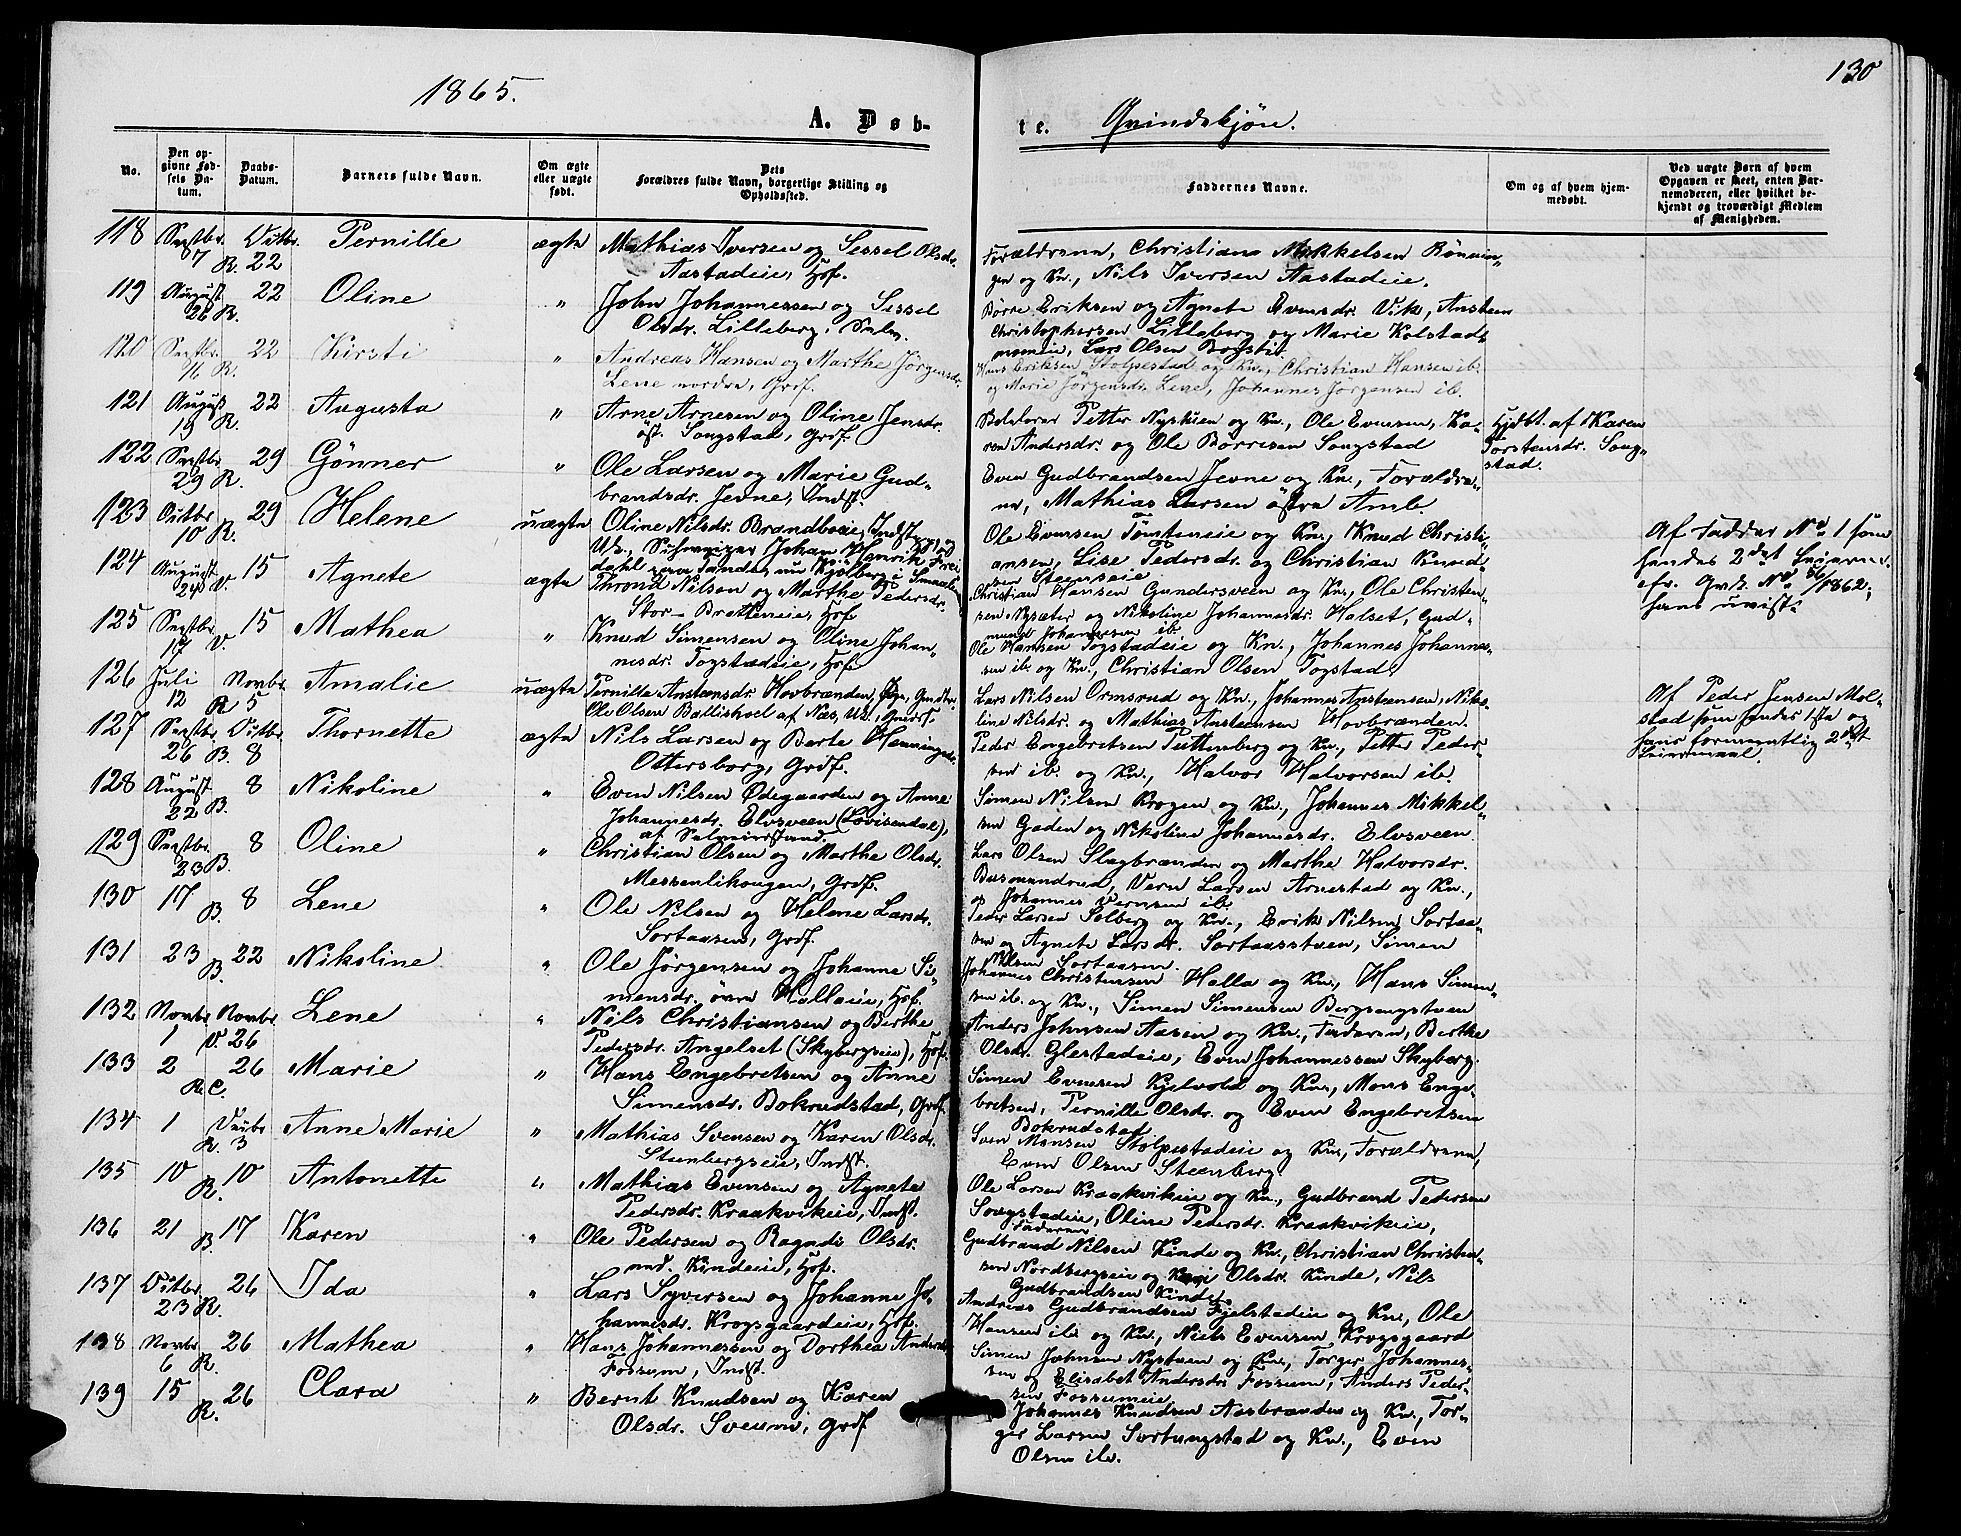 1865.
130
A. Døb-
te. Qvindekjön.
No.
Den op-
givne Fød-
sels Da-
tum.
Daabs-
Datum.
Barnets fulde Navn.
Om ægte
eller uægte
født.
Dets
Forældres fulde Navn, borgerlige Stilling og
Opholdssted.
Faddernes Navne.
Om og af hvem hjem-
medøbt.
Ved uægte Børn af hvem
Opgaven er skeet, enten Bar-
nemoderen, eller hvilket be-
kjendt og troværdigt Medlem
af Menigheden.
118 Septbr. 7 Octbr. R. 22 Pernille ægte Mathias Iversen og Sissel Olsdr.
Aastadeie, Hsf.
Forældrene, Christian Mikkelsen Rönnin-
gen og Kn., Nils Iversen Aastadeie.
119 August 26 R. 22 Oline " John Johannessen og Sissel
Olsdr. Lilleberg,
Börre Eriksen og Agnete Evensdr. Vik, Ansteen
Christophersen Lilleberg og Marie Kolstad
Lars Olsen
120 Septbr. 11 R. 22 Kirsti " Andreas Hansen og Marthe Jörgensdr.
Lene nordre, Grdf.
Hans Eriksen Stolpestad og Kn., Christian Hansen ib.
og Marie Jörgensdr. Lene, Johannes Jörgensen ib.
121 August 19 R. 22 Augusta " Arne Arnesen og Oline Jensdr.
öst. Songstad, Grdf.
Petter Nyskien og Kn., Ole Evensen, Ka-
ren Andersdr. og Ole Börresen Songstad
Hjdbt. af Karen
Torstensdr. Song-
stad.
122 Septbr. 29 R. 29 Gönner " Ole Larsen og Marie Gud-
brandsdr. Jevne, Indst.
Even Gudbrandsen Jevne og Kn., Forældre-
ne, Mathias Larsen östre Amb.
123 Octbr. 10 R. 29 Helene uægte Oline Nilsdr. Brandboeie, Indst. Pige, og
Uk., Schweizer Johan Henrik Frei
dahl
Ole Evensen Tömteneie og Kn., Knud Christi-
ansen, Lise Pedersdr. og Christian Knud
sen Steenseie
Af Fadder No. 1 som
hendes 2det Leierm.
cfr. Grdz. No. 56/1862;
hans uvist.
124 August 24 V. 15 Agnete ægte Thrond Nilsen og Marthe Pedersdr.
Stor-Bratteneie, Hsf.
Christian Hansen Gundersveen og Kn., Ole Christen-
sen Nysæter og Nikoline Johannesdr. Halset, Gud-
mund Johannessen ib.
125 Septbr. 17 V. 15 Mathea " Knud Simensen og Oline Johan-
nesdr. Togstadeie, Hsf.
Ole Hansen Togstadeie og Kn., Johannes Johannes-
sen ib. og Kn., Christian Olsen Togstad.
126 Juli 12 Novbr. R 5 Amalie uægte Pernille Anstensdr. Hovbrænden, Pige,
Ole Olsen Ballishoel af Næs, Uk.,
Lars Nilsen Ormsrud og Kn., Johannes Anstensen, Niko-
line Nilsdr. og Mathias Anstensen Hovbrænden.
Af Peder Jensen Mol-
stad som hendes 1ste og
hans formentlig 2det
Leiermaal.
127 Septbr. 26 Octbr. B. 8 Thornette ægte Nils Larsen og Berte Henningsdr.
Ottersborg, Grdf.
Peder Engebretsen Puttenberg og Kn., Petter Peder-
sen ib. og Kn., Halvor Halvorsen ib.
128 August 22 B. 8 Nikoline " Even Nilsen Ödegaarden og Anne
Johannesdr. Elvsveen (Lovisendal),

Simen Nilsen Krogen og Kn., Johannes Mikkel-
sen Gaden og Nikoline Johannesdr. Elvsveen.
129 Septbr. 23 B. 8 Oline " Christian Olsen og Marthe Olsdr.
Messenlihaugen, Grdf.
Lars Olsen Slagbrenden og Marthe Halvorsdr.
Busmundrud, Vern Larsen Arnestad og Kn.,
og Johannes Vernsen ib.
130 17 B. 8 Lene " Ole Nilsen og Helene Larsdr.
Sortaasen, Grdf.
Peder Larsen Solberg og Kn., Erik Nilsen Sortaa-
sen og Agnete Larsdr. Sortaasstuen, Simen
Nilsen Sortaasen.
131 23 B. 22 Nikoline " Ole Jörgensen og Johanne Si-
mensdr. övre Hallaeie, Hsf.
Johannes Christensen Halla og Kn., Hans Simen-
sen ib. og Kn., Simen Simensen Bergsengstuen
132 Novbr. 1 Novbr. V. 26 Lene " Nils Christiansen og Berthe
Pedersdr. Angelset (Skybergseie), Hsf.
Anders Johnsen Aasen og Kn., Faderen, Berthe
Olsdr. Glestadeie, Even Johannessen Skyberg.
133 2 R.C. 26 Marie " Hans Engebretsen og Anne
Simensdr. Bokrudstad, Grdf.
Simen Evensen Kjelvold og Kn., Mons Enge-
bretsen, Pernille Olsdr. og Even Engebretsen
Bokrudstad
134 1 Decbr. R. 3 Anne Marie " Mathias Svensen og Karen Olsdr.
Steenbergseie, Indst.
Sven Monsen Stolpestadeie og Kn., Forældrene,
Even Olsen Steenberg
135 10 R. 10 Antonette " Mathias Evensen og Agnete
Pedersdr. Kraakvikeie, Indst.
Ole Larsen Kraakvikeie og Kn., Gudbrand Pedersen
Songstadeie, Oline Pedersdr. Kraakvikeie,
Faderen
136 21 B. 17 Karen " Ole Pedersen og Ragndi Olsdr.
ned. Kindeeie, Hsf.
Gudbrand Nilsen Kinde og Kn., Christian Christen-
sen Nordbergseie og Kari Olsdr. Kinde, Nils
Gudbrandsen Kinde.
137 Octbr. 23 R. 26 Ida " Lars Syversen og Johanne Jo-
hannesdr. Krogsgaardeie, Hsf.
Andreas Gudbrandsen Fjelstadeie og Kn., Ole
Hansen ib. og Kn., Niels Evensen Krogsgaard
138 Novbr. 6 R. 26 Mathea " Hans Johannessen og Dorthea Andersdr.
Fossum, Indst.
Simen Johnsen Nystuen og Kn., Torger Johannes-
sen og Elisabet Andersdr. Fossum, Anders Peder-
sen Fossumeie
139 15 R. 26 Clara " Bernt Knudsen og Karen
Olsdr. Sveum, Grdf
Johannes Knudsen Aasbrænden og Kn., Tor-
ger Larsen Sortungstad og Kn., Even
Olsen ib.